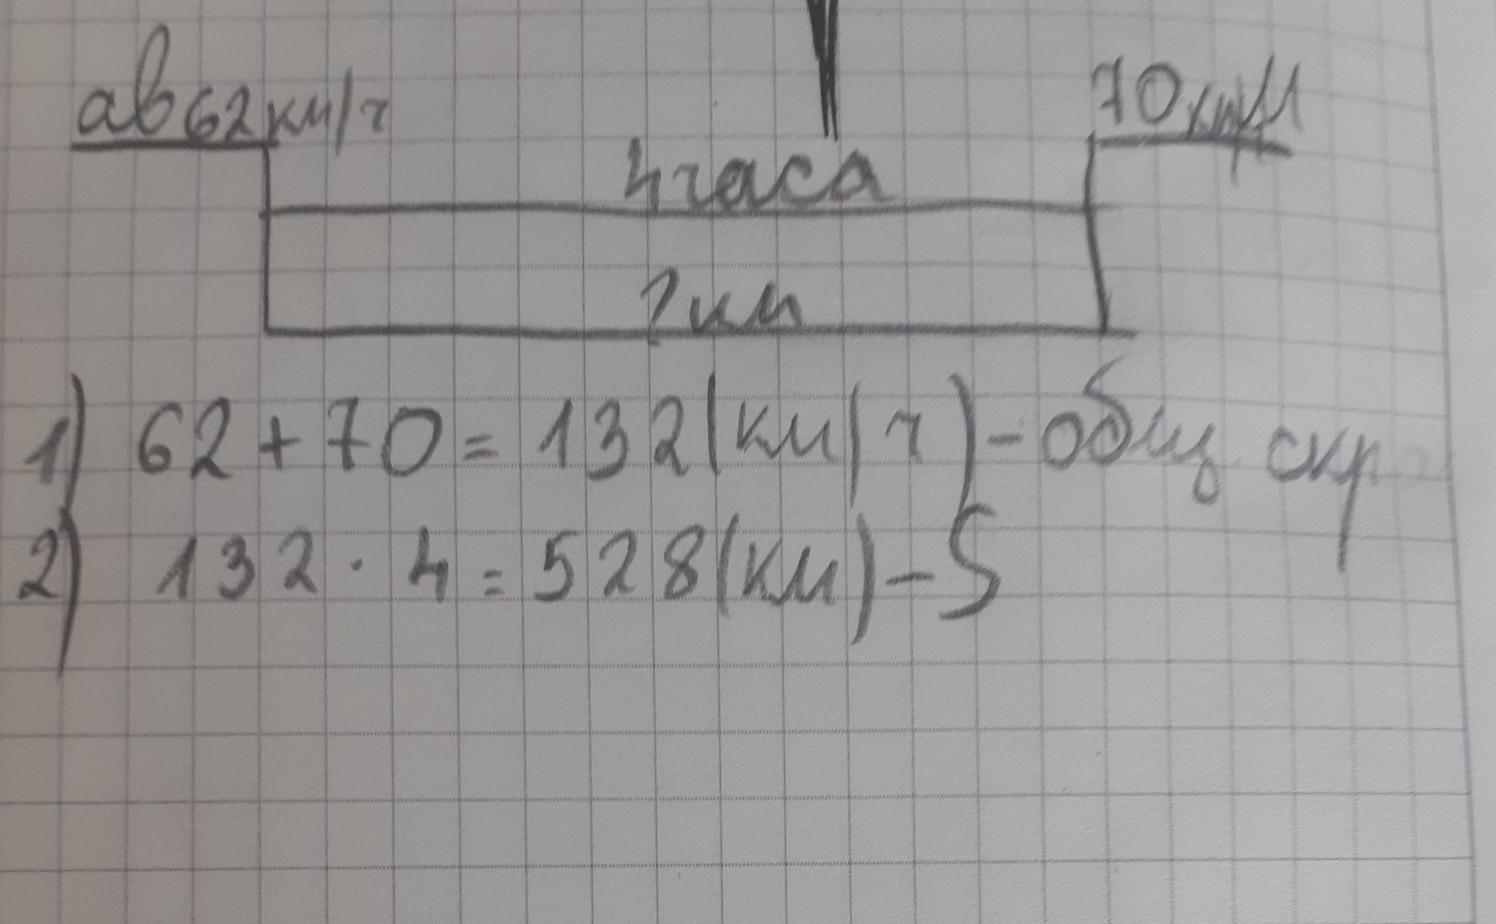 ав 62 км/ч
70 км/ч
4 часа
? км
1) 62 + 70 = 132 (км/ч) - общ скр
2) 132 · 4 = 528 (км) - S